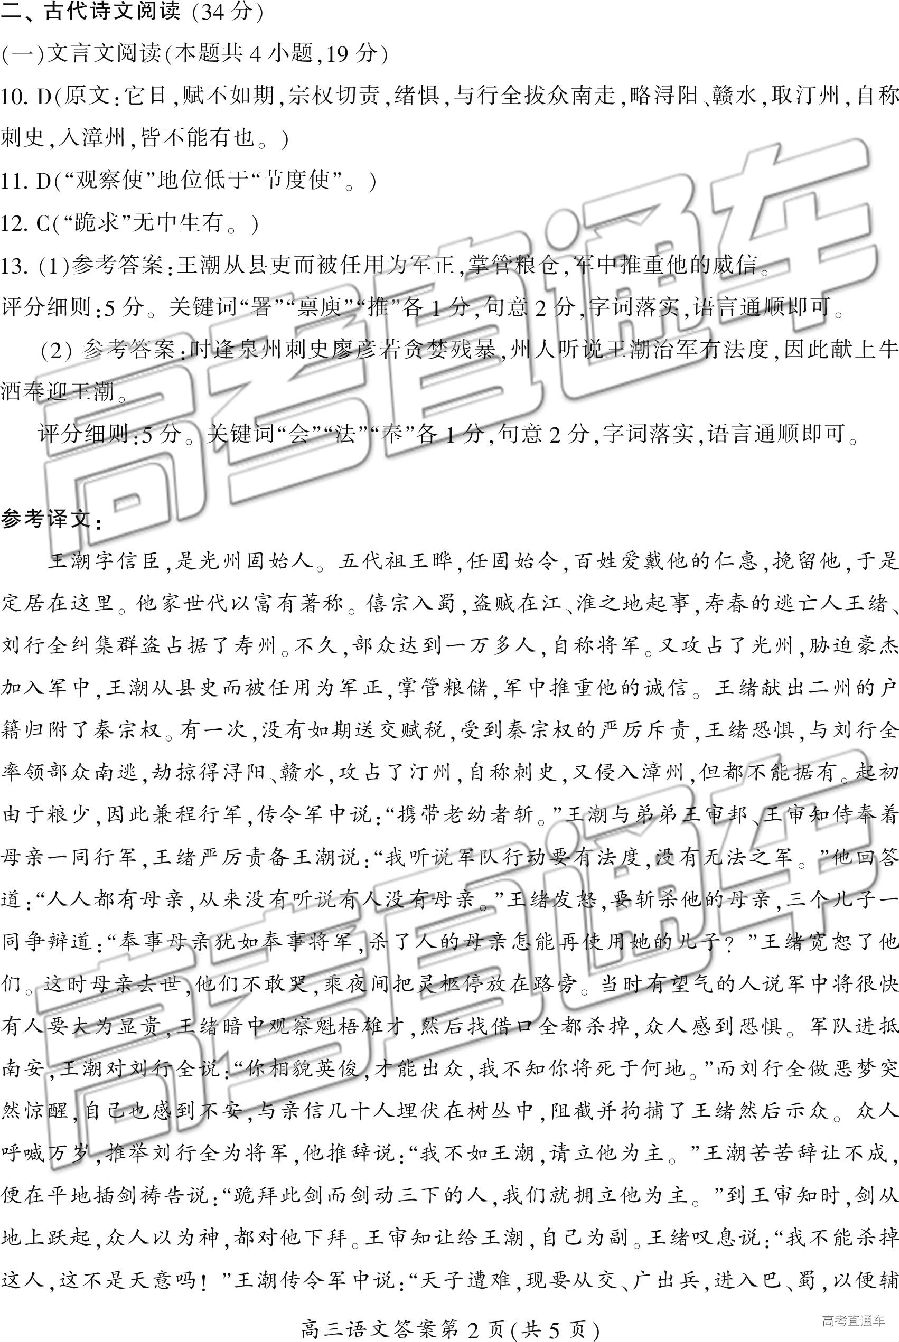 二、古代诗文阅读 (34 分)
(一)文言文阅读(本题共 4 小题,19 分)
10. D(原文:它日,赋不如期,宗权切责,绪惧,与行全拔众南走,略浔阳、赣水,取汀州,自称
刺史,入漳州,皆不能有也。)
11. D(“观察使”地位低于“节度使”。)
12. C(“跪求”无中生有。)
13. (1)参考答案:王潮从县吏而被任用为军正,掌管粮仓,军中推重他的威信。
评分细则:5 分。关键词“署”“禀庾”“推”各 1 分,句意 2 分,字词落实,语言通顺即可。
(2) 参考答案:时逢泉州刺史廖彦若贪婪残暴,州人听说王潮治军有法度,因此献上牛
酒奉迎王潮。
评分细则:5 分。关键词“会”“法”“奉”各 1 分,句意 2 分,字词落实,语言通顺即可。
参考译文:
王潮字信臣,是光州固始人。五代祖王晔,任固始令,百姓爱戴他的仁惠,挽留他,于是
定居在这里。他家世代以富有著称。僖宗入蜀,盗贼在江、淮之地起事,寿春的逃亡人王绪、
刘行全纠集群盗占据了寿州。不久,部众达到一万多人,自称将军。又攻占了光州,胁迫豪杰
加入军中,王潮从县史而被任用为军正,掌管粮储,军中推重他的诚信。王绪献出二州的户
籍归附了秦宗权。有一次,没有如期送交赋税,受到秦宗权的严厉斥责,王绪恐惧,与刘行全
率领部众南逃,劫掠得浔阳、赣水,攻占了汀州,自称刺史,又侵入漳州,但都不能据有。起初
由于粮少,因此兼程行军,传令军中说:“携带老幼者斩。”王潮与弟弟王审邽、王审知侍奉着
母亲一同行军,王绪严厉责备王潮说:“我听说军队行动要有法度,没有无法之军。”他回答
道:“人人都有母亲,从来没有听说有人没有母亲。”王绪发怒,要斩杀他的母亲,三个儿子一
同争辩道:“奉事母亲犹如奉事将军,杀了人的母亲怎能再使用她的儿子?”王绪宽恕了他
们。这时母亲去世,他们不敢哭,乘夜间把灵柩停放在路旁。当时有望气的人说军中将很快
有人要大为显贵,王绪暗中观察魁梧雄才,然后找借口全都杀掉,众人感到恐惧。军队进抵
南安,王潮对刘行全说:“你相貌英俊,才能出众,我不知你将死于何地。”而刘行全做恶梦突
然惊醒,自己也感到不安,与亲信几十人埋伏在树丛中,阻截并拘捕了王绪然后示众。众人
呼喊万岁,推举刘行全为将军,他推辞说:“我不如王潮,请立他为主。”王潮苦苦辞让不成,
便在平地插剑祷告说:“跪拜此剑而剑动三下的人,我们就拥立他为主。”到王审知时,剑从
地上跃起,众人以为神,都对他下拜。王审知让给王潮,自己为副。王绪叹息说:“我不能杀掉
这人,这不是天意吗!”王潮传令军中说:“天子遭难,现要从交、广出兵,进入巴、蜀,以便辅
高三语文答案第 2 页(共 5 页)
高考直通车
高考直通车
高考直通车